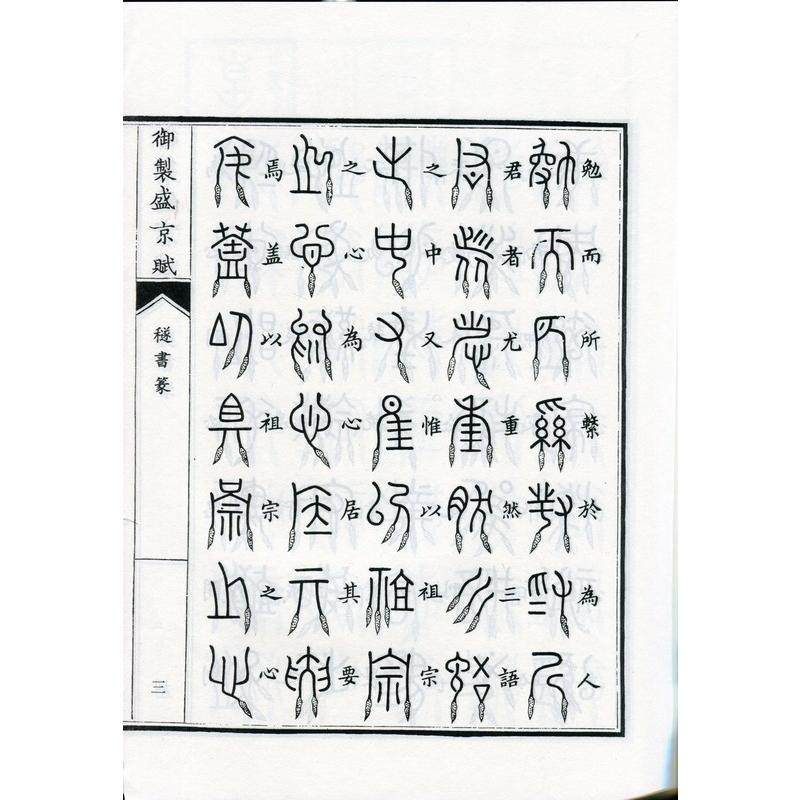 勉而所繫於為人
君者尤重然三語
之中又惟以祖宗
之心為心居其要
焉盖以祖宗之心
御製盛京賦
穟書篆
三